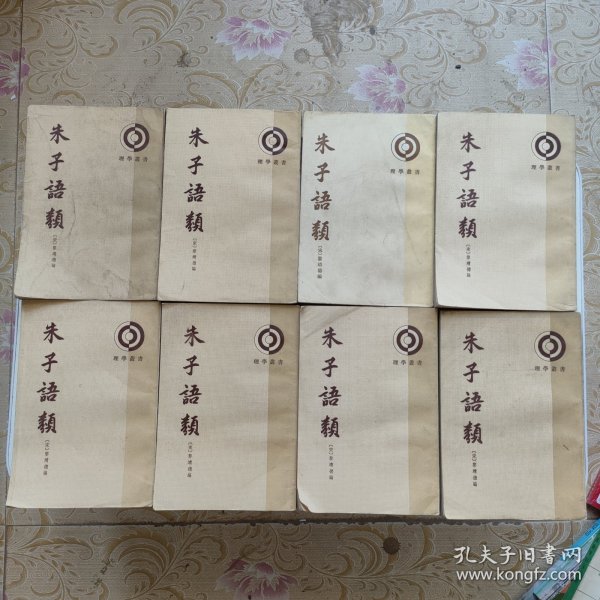 朱子語類
〔宋〕黎靖德編
理學叢書
朱子語類
〔宋〕黎靖德編
理學叢書
朱子語類
〔宋〕黎靖德編
理學叢書
朱子語類
〔宋〕黎靖德編
理學叢書
朱子語類
〔宋〕黎靖德編
理學叢書
朱子語類
〔宋〕黎靖德編
理學叢書
朱子語類
〔宋〕黎靖德編
理學叢書
朱子語類
〔宋〕黎靖德編
理學叢書
孔夫子旧書网
www.kongfz.com